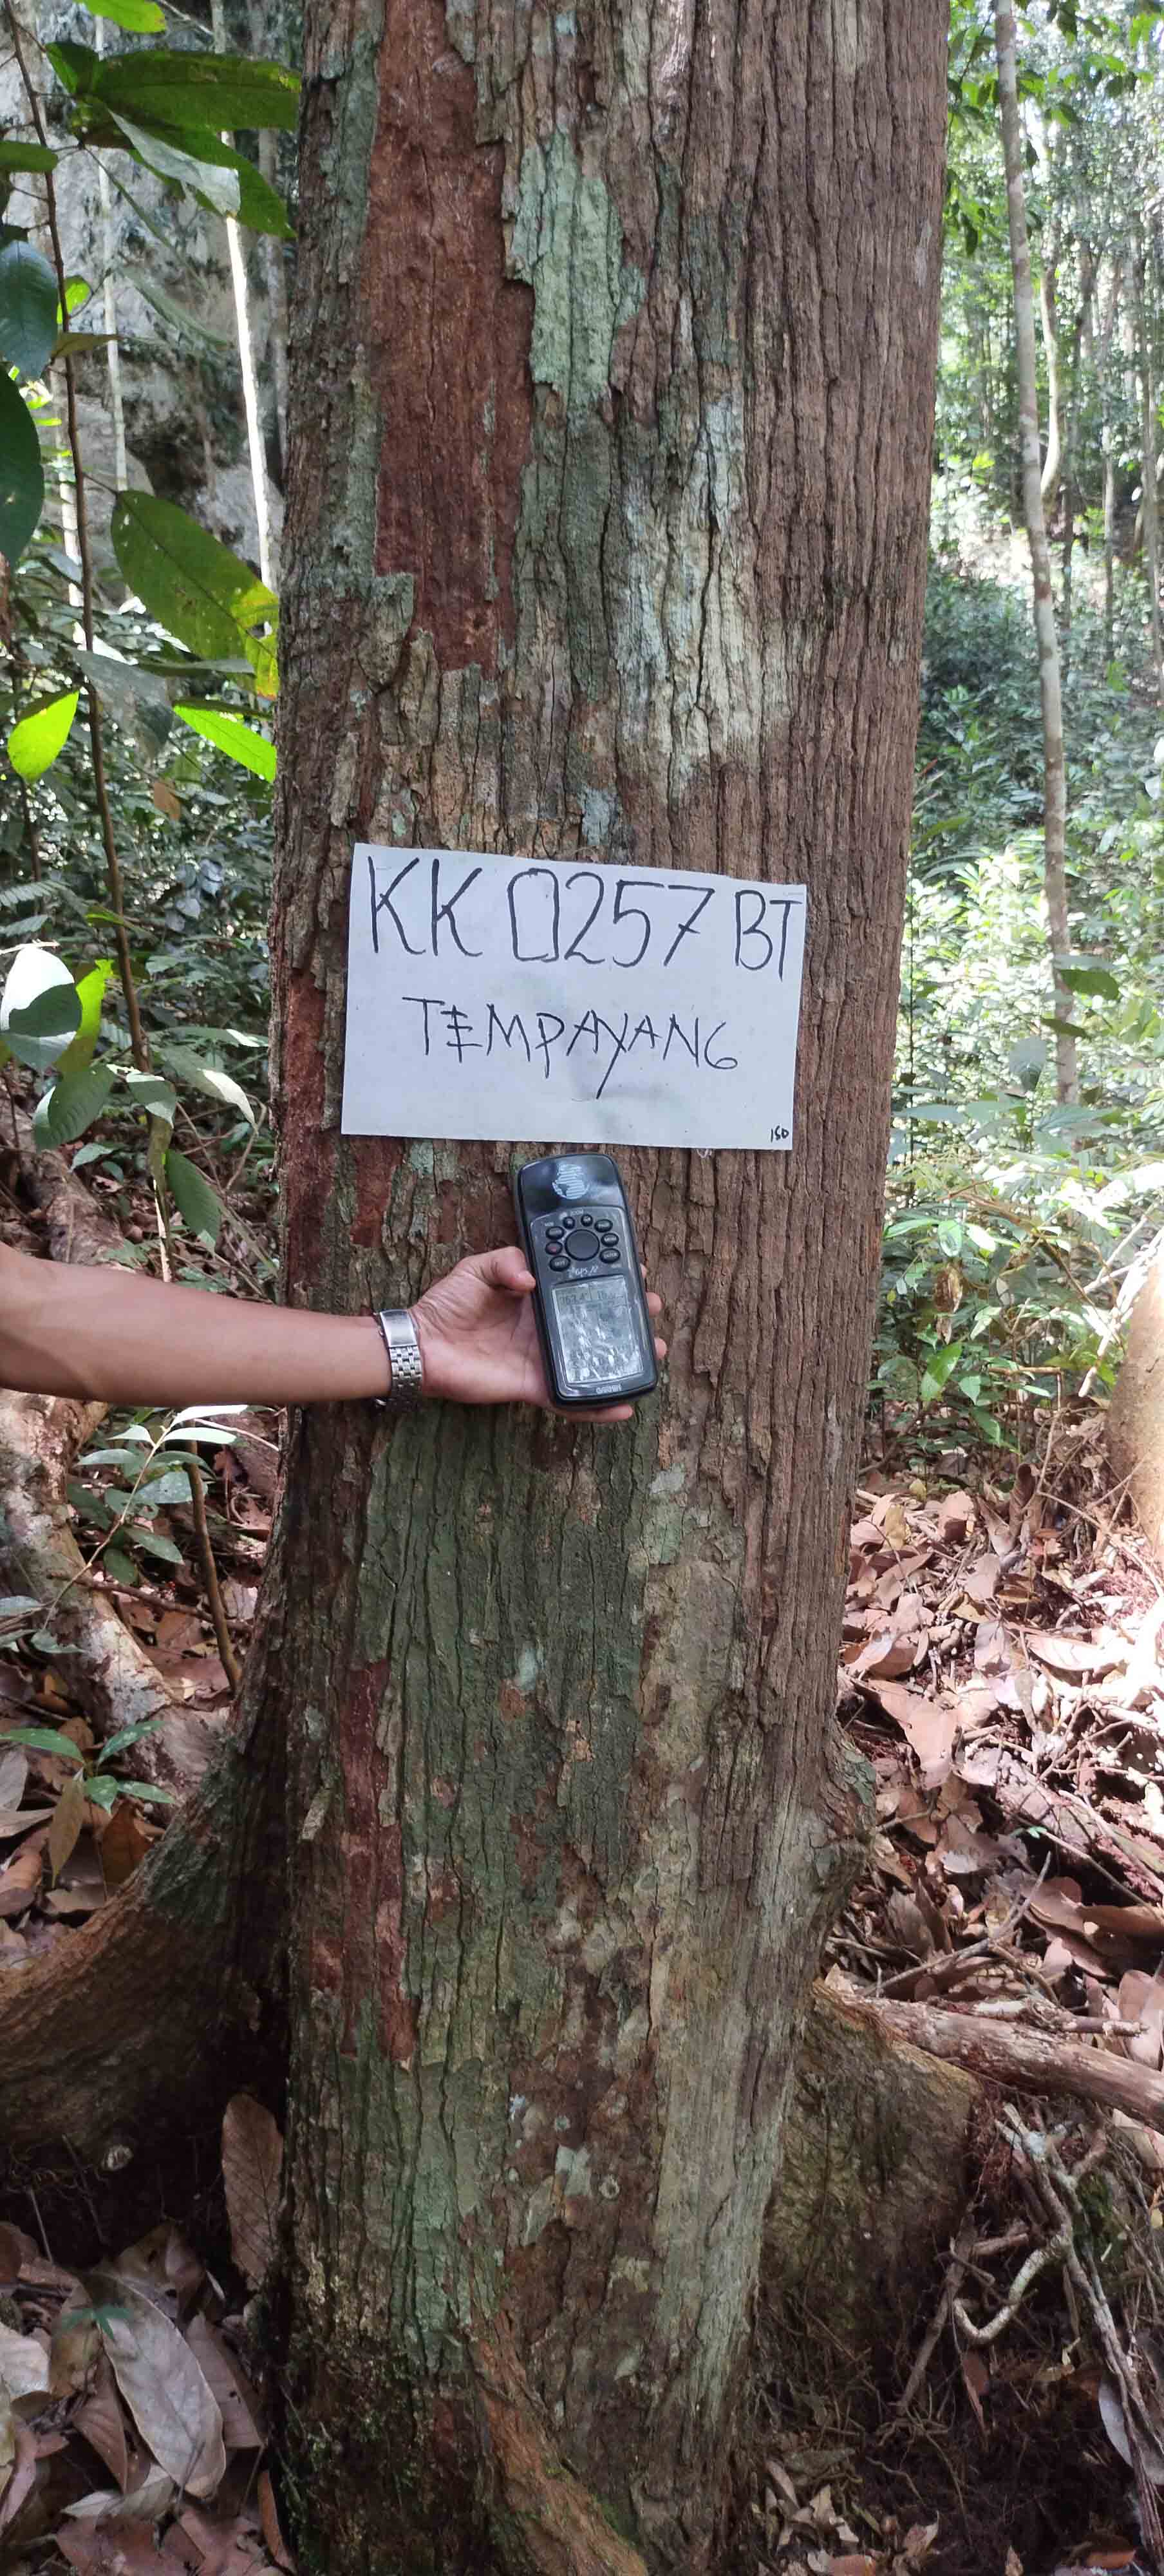 KK 0257 BT
TEMPAYANG
150
GARMIN